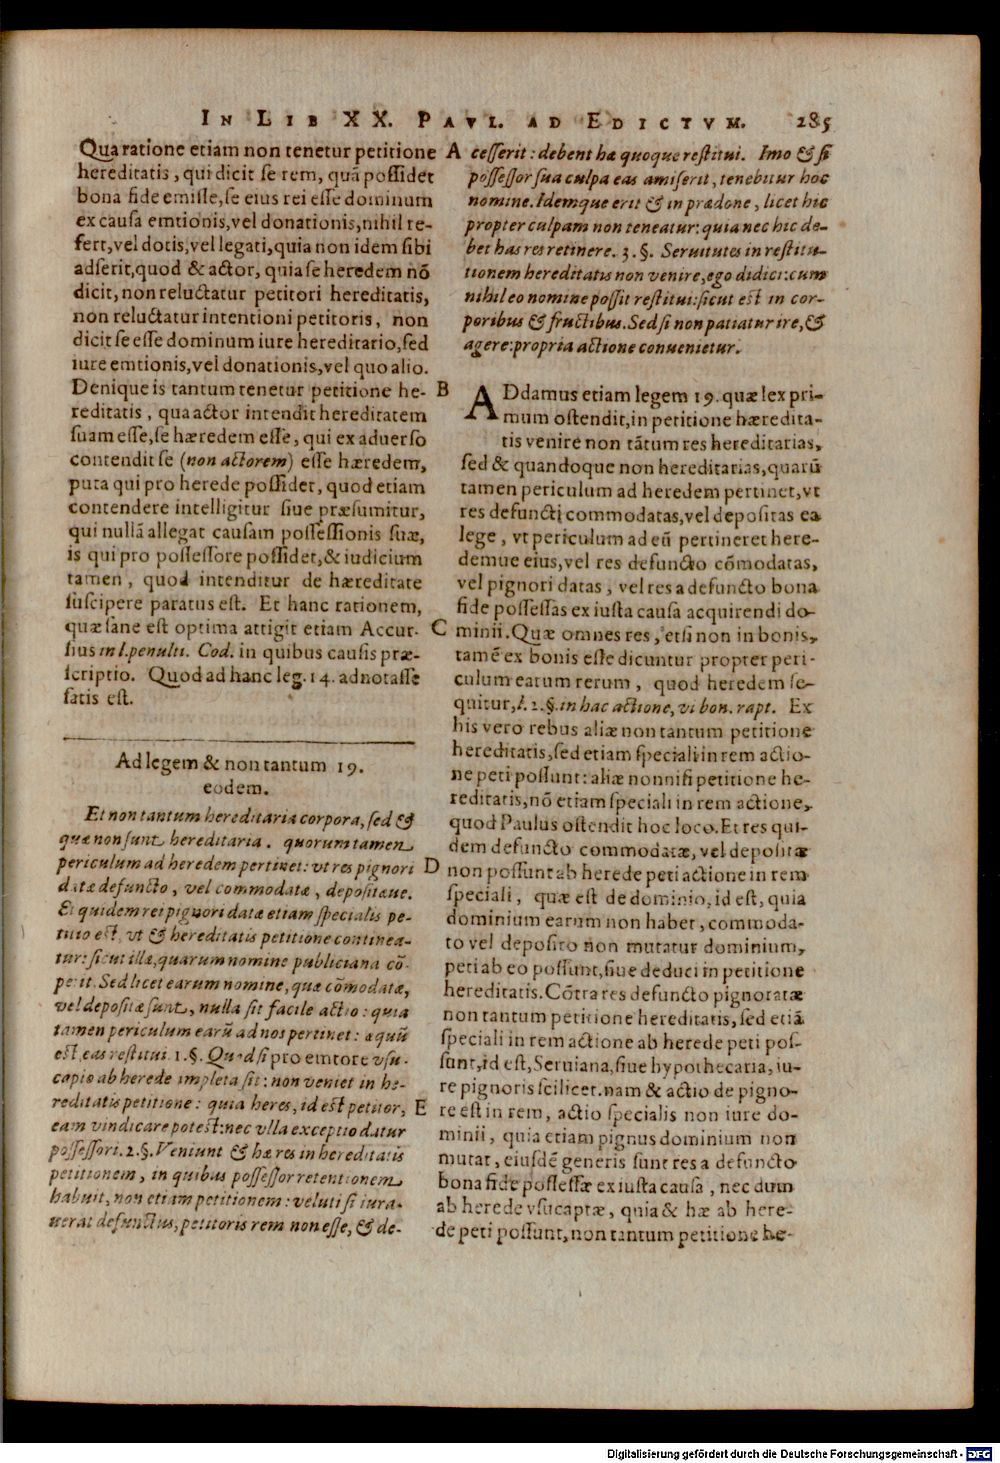 In Lib XX. Pavl. ad Edictvm. 285
Qua ratione etiam non tenetur petitione
hereditatis, qui dicit se rem, quã possidet
bona fide emisse, se eius rei esse dominum
ex causa emtionis, vel donationis, nihil re-
fert, vel dotis, vel legati, quia non idem sibi
adserit, quod & actor, quia se heredem nõ
dicit, non reluctatur petitori hereditatis,
non reluctatur intentioni petitoris, non
dicit se esse dominum iure hereditario, sed
iure emtionis, vel donationis, vel quo alio.
Denique is tantum tenetur petitione he-
reditatis, qua actor intendit hereditatem
suam esse, se hæredem esse, qui ex aduerso
contendit se (non actorem) esse hæredem,
puta qui pro herede possidet, quod etiam
contendere intelligitur siue præsumitur,
qui nullã allegat causam possessionis suæ,
is qui pro possessore possidet, & iudicium
tamen, quod intenditur de hæreditate
suscipere paratus est. Et hanc rationem,
quæ sane est optima attigit etiam Accur-
sius in l. penult. Cod. in quibus causis præ-
scriptio. Quod ad hanc leg. 14. adnotasse
satis est.
Ad legem & non tantum 19.
eodem.
Et non tantum hereditaria corpora, sed &
quæ non sunt hereditaria. quorum tamen
periculum ad heredem pertinet: vt res pignori
datæ defuncto, vel commodatæ, depositæue.
Et quidem rei pignori datæ etiam specialis pe-
titio est, vt & hereditatis petitione continea-
tur: sicut illæ, quarum nomine publiciana cõ-
petit. Sed licet earum nomine, quæ cõmodatæ,
vel depositæ sunt, nulla sit facile actio: quia
tamen periculum earũ ad nos pertinet: æquũ
est, eas restitui. 1. §. Quod si pro emtore vsu-
capio ab herede impleta sit: non veniet in he-
reditatis petitione: quia heres, id est petitor,
eam vindicare potest: nec vlla exceptio datur
possessori. 2. §. Veniunt & hæ res in hereditatis
petitionem, in quibus possessor retentionem
habuit, non etiam petitionem: veluti si iura-
uerat defunctus, petitoris rem non esse, & de-
A cesserit: debent hæ quoque restitui. Imo & si
possessor sua culpa eas amiserit, tenebitur hoc
nomine. Idemque erit & in prædone, licet hic
propter culpam non teneatur: quia nec hic de-
bet has res retinere. 3. §. Seruitutes in restitu-
tionem hereditatis non venire, ego didici: cum
nihil eo nomine possit restitui: sicut est in cor-
poribus & fructibus. Sed si non patiatur ire, &
agere: propria actione conuenietur.
B ADdamus etiam legem 19. quæ lex pri-
mum ostendit, in petitione hæredita-
tis venire non tãtum res hereditarias,
sed & quandoque non hereditarias, quarũ
tamen periculum ad heredem pertinet, vt
res defuncti commodatas, vel depositas ea
lege, vt periculum ad eũ pertineret here-
demue eius, vel res defuncto cõmodatas,
vel pignori datas, vel res a defuncto bona
fide possessas ex iusta causa acquirendi do-
C minii. Quæ omnes res, etsi non in bonis,
tamẽ ex bonis esse dicuntur propter peri-
culum earum rerum, quod heredem se-
quitur, l. 2. §. in hac actione, vi bon. rapt. Ex
his vero rebus aliæ non tantum petitione
hereditatis, sed etiam speciali in rem actio-
ne peti possunt: aliæ nonnisi petitione he-
reditatis, nõ etiam speciali in rem actione,
quod Paulus ostendit hoc loco. Et res qui-
dem defuncto commodatæ, vel depositæ
D non possunt ab herede peti actione in rem
speciali, quæ est de dominio, id est, quia
dominium earum non habet, commoda-
to vel deposito non mutatur dominium,
peti ab eo possunt, siue deduci in petitione
hereditatis. Cõtra res defuncto pignoratæ
non tantum petitione hereditatis, sed etiã
speciali in rem actione ab herede peti pos-
sunt, id est, Seruiana, siue hypothecaria, iu-
re pignoris scilicet. nam & actio de pigno-
E re est in rem, actio specialis non iure do-
minii, quia etiam pignus dominium non
mutat, eiusdẽ generis sunt res a defuncto
bona fide possessæ ex iusta causa, nec dum
ab herede vsucaptæ, quia & hæ ab here-
de peti possunt, non tantum petitione he-
Digitalisierung gefördert durch die Deutsche Forschungsgemeinschaft - DFG